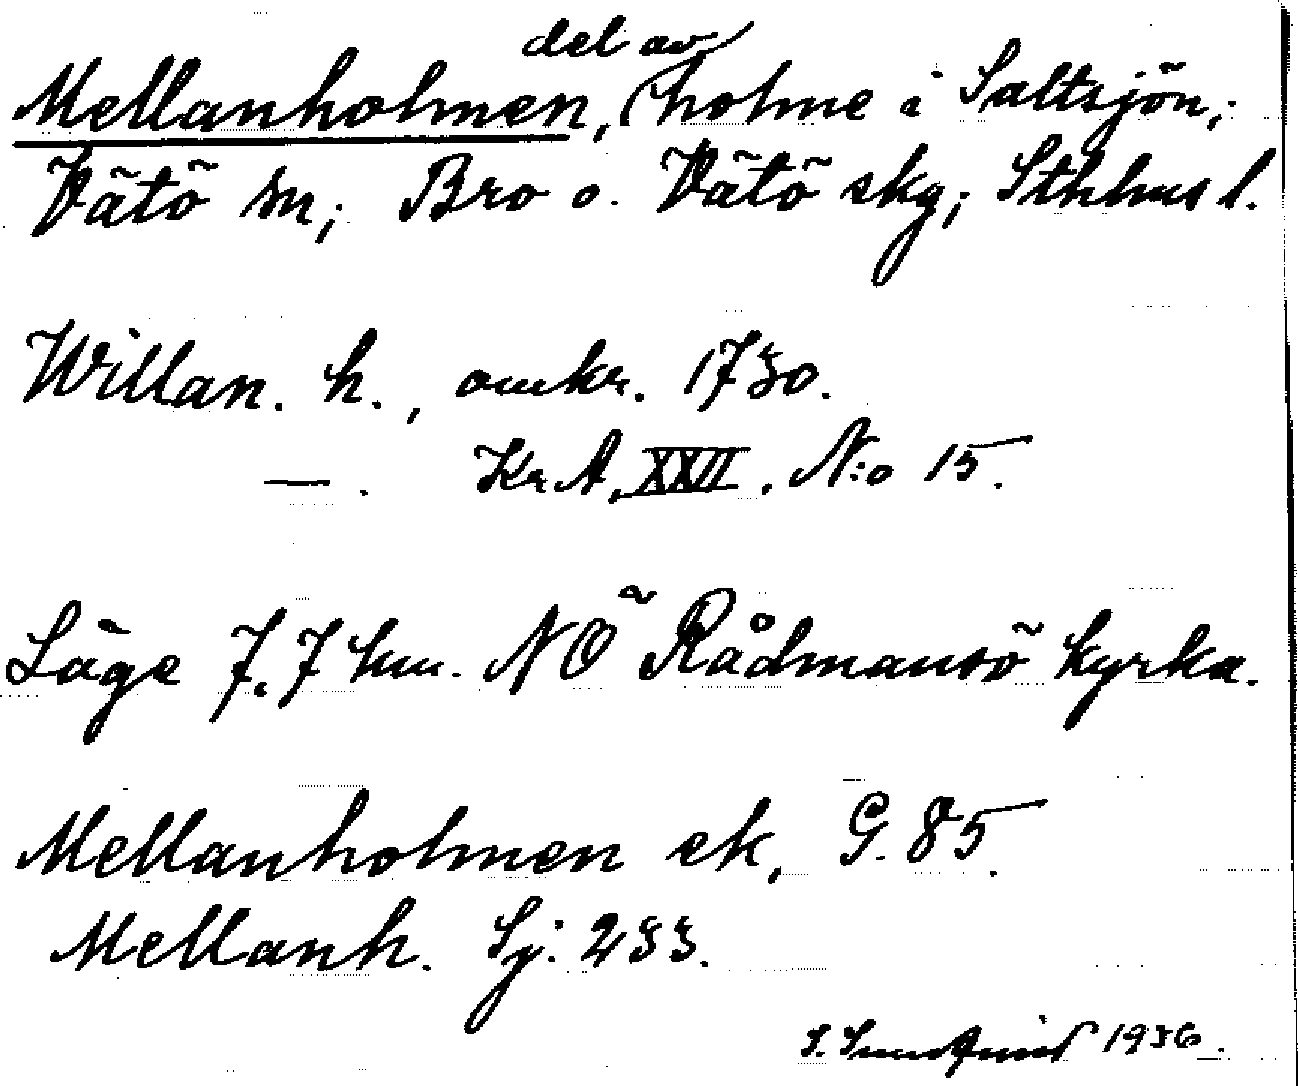 Mellanholmen, del av holme i Saltsjön;
Vätö sn; Bro o. Vätö skg; Sthlms l.
Willan. h., omkr. 1730.
— . KrA, XXII. N:o 15.
Läge 7.7 km. NÖ Rådmansö kyrka.
Mellanholmen ek, G. 85.
Mellanh. Sj: 233.
1936.